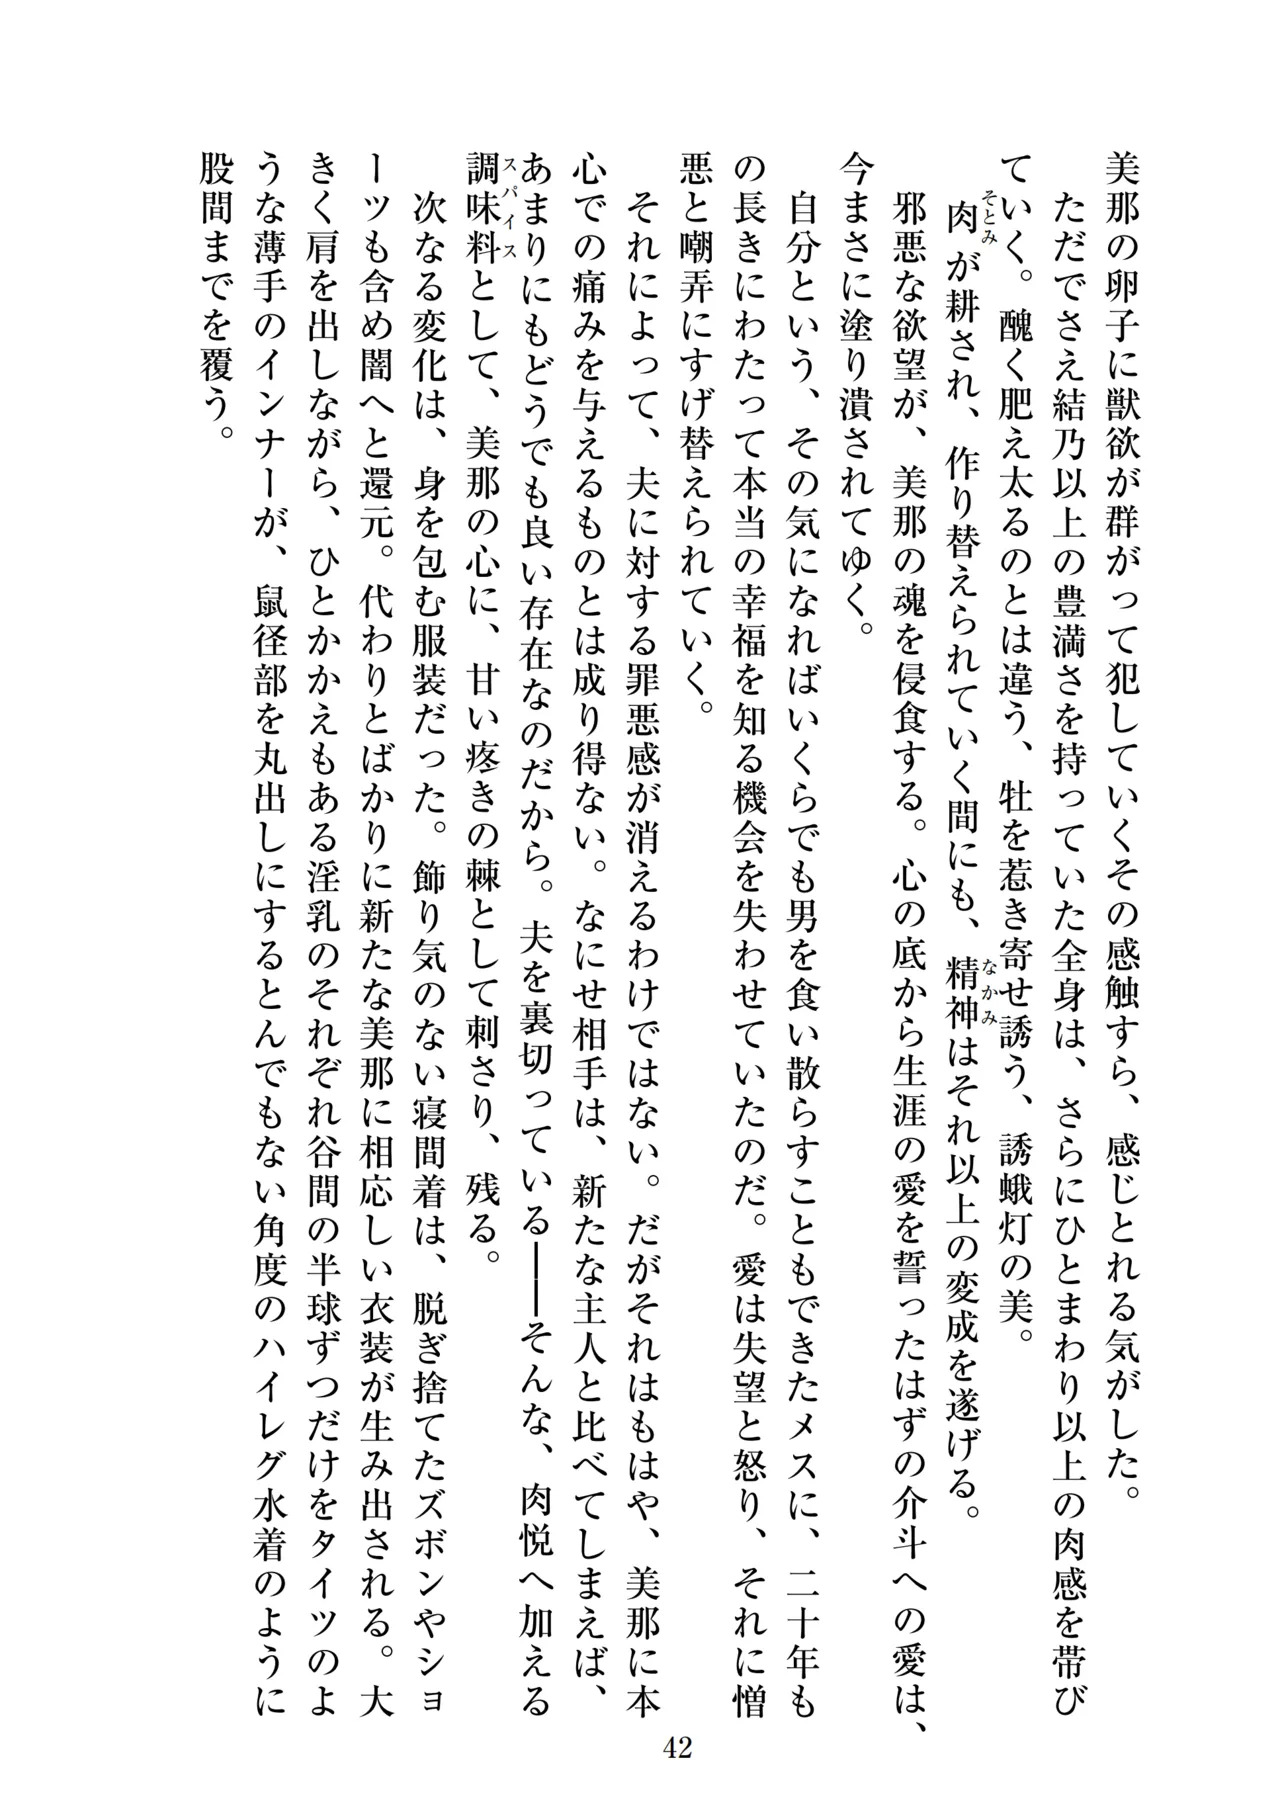 美那の卵子に獣欲が群がって犯していくその感触すら、感じとれる気がした。
ただでさえ結乃以上の豊満さを持っていた全身は、さらにひとまわり以上の肉感を帯び
ていく。醜く肥え太るのとは違う、牡を惹き寄せ誘う、誘蛾灯の美。
肉が耕され、作り替えられていく間にも、精神はそれ以上の変成を遂げる。
そとみ
なかみ
邪悪な欲望が、美那の魂を侵食する。心の底から生涯の愛を誓ったはずの介斗への愛は、
今まさに塗り潰されてゆく。
自分という、その気になればいくらでも男を食い散らすこともできたメスに、二十年も
の長きにわたって本当の幸福を知る機会を失わせていたのだ。愛は失望と怒り、それに憎
悪と嘲弄にすげ替えられていく。
それによって、夫に対する罪悪感が消えるわけではない。だがそれはもはや、美那に本
心での痛みを与えるものとは成り得ない。なにせ相手は、新たな主人と比べてしまえば、
あまりにもどうでも良い存在なのだから。夫を裏切っている――そんな、肉悦へ加える
調味料として、美那の心に、甘い疼きの棘として刺さり、残る。
スパイス
次なる変化は、身を包む服装だった。飾り気のない寝間着は、脱ぎ捨てたズボンやショ
ーツも含め闇へと還元。代わりとばかりに新たな美那に相応しい衣装が生み出される。大
きく肩を出しながら、ひとかかえもある淫乳のそれぞれ谷間の半球ずつだけをタイツのよ
うな薄手のインナーが、鼠径部を丸出しにするとんでもない角度のハイレグ水着のように
股間までを覆う。
42